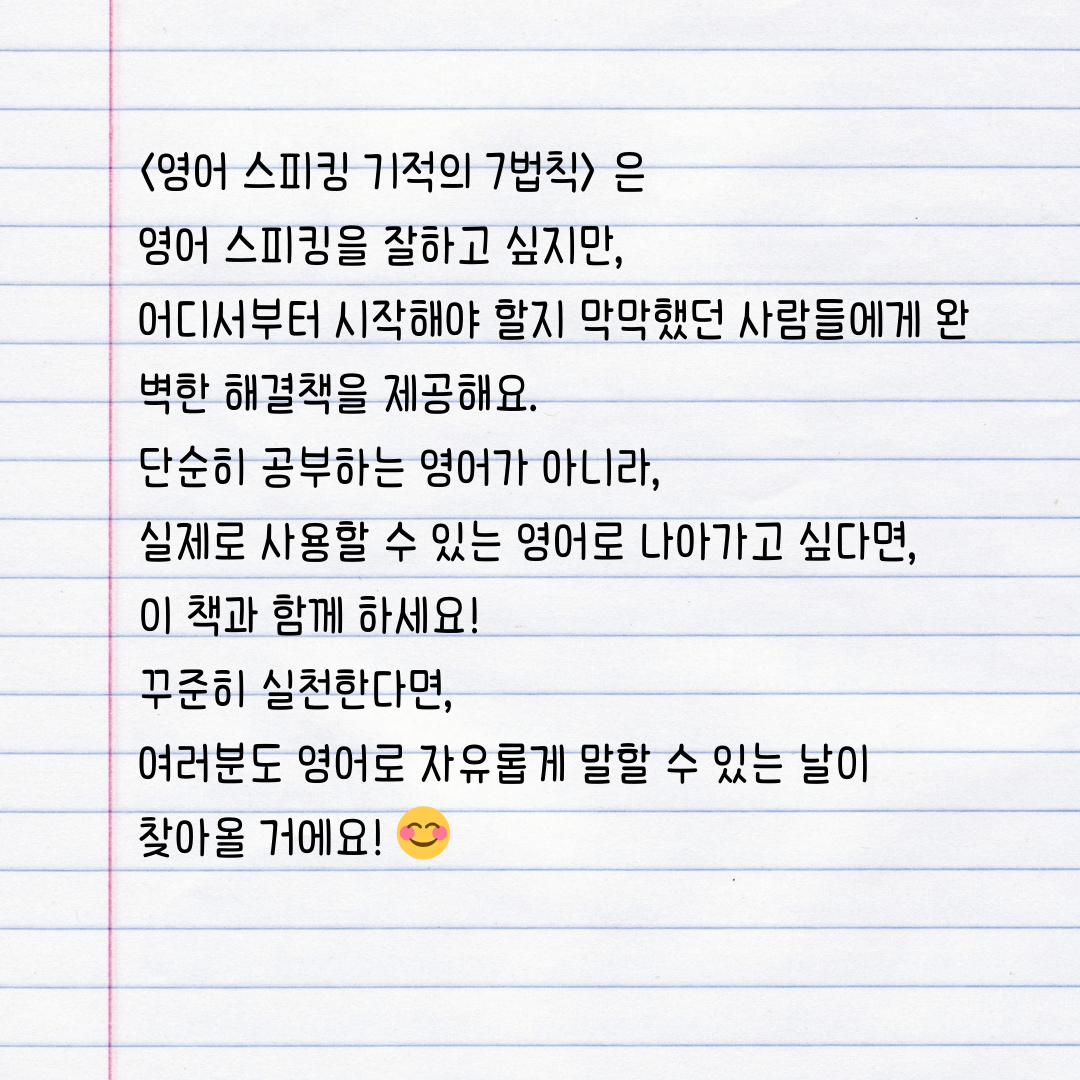 <영어 스피킹 기적의 7법칙> 은
영어 스피킹을 잘하고 싶지만,
어디서부터 시작해야 할지 막막했던 사람들에게 완
벽한 해결책을 제공해요.
단순히 공부하는 영어가 아니라,
실제로 사용할 수 있는 영어로 나아가고 싶다면,
이 책과 함께 하세요!
꾸준히 실천한다면,
여러분도 영어로 자유롭게 말할 수 있는 날이
찾아올 거에요! 😊